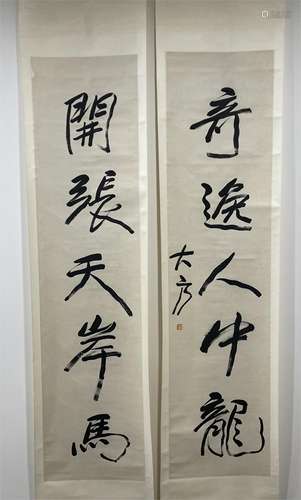 開張天岸馬
奇逸人中龍
大方